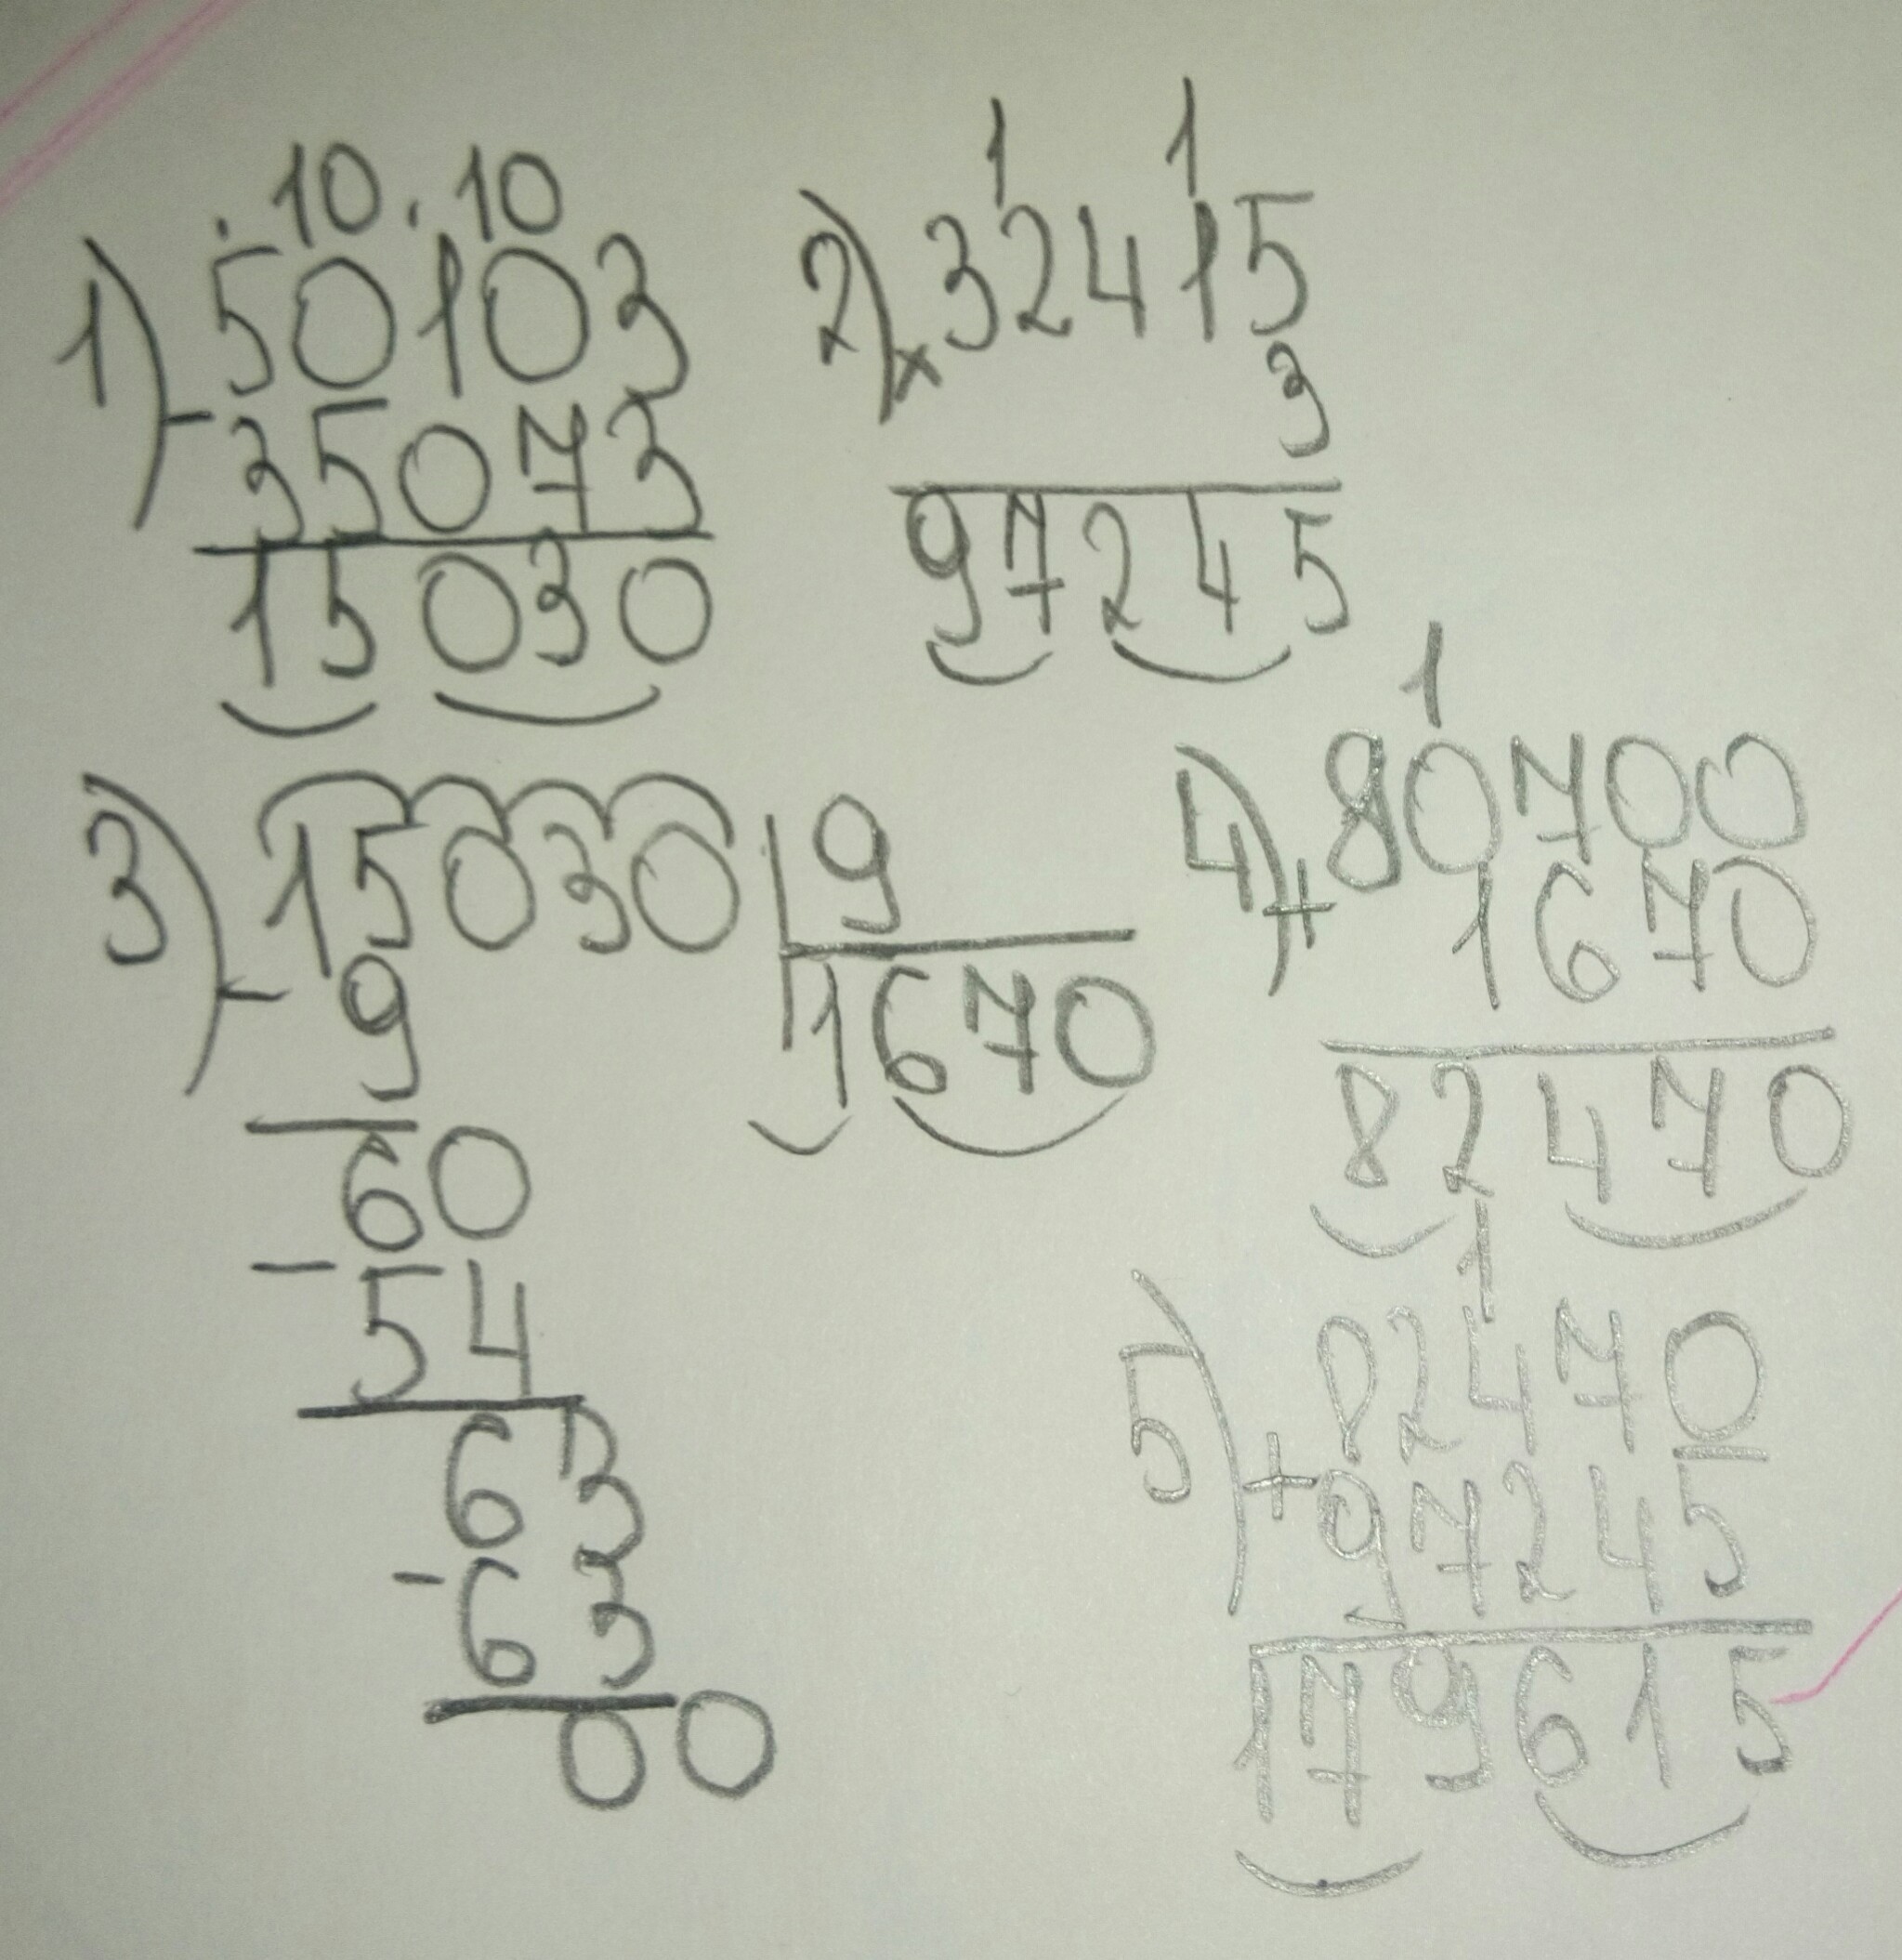 .10.10
1) 50103
- 35073
15030
1 1
2) 32415
× 3
97245
3) 15030 | 9
- 9 1670
60
- 54
63
- 63
00
1
4) 80700
+ 1670
82470
1
5) 82470
+ 97245
179615